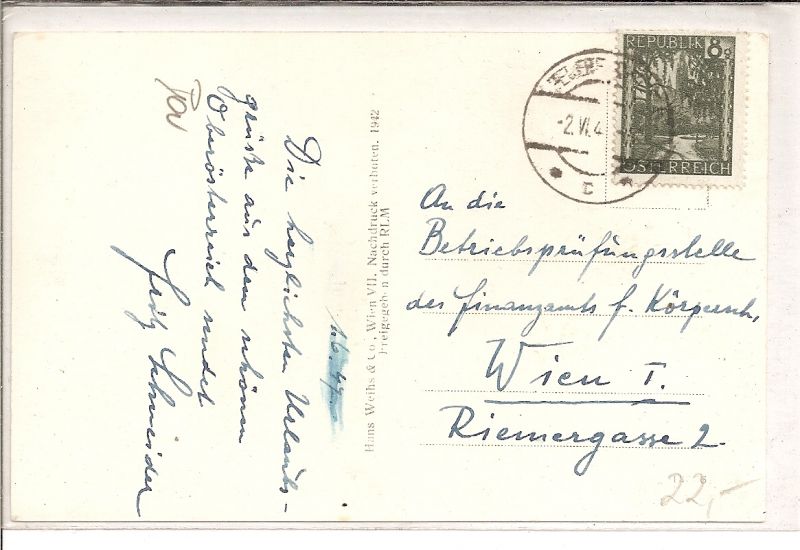 Die herzlichsten Urlaubs-
grüße aus den schönen
Oberösterreich sendet
Fritz Schneider
1.6.47.
Hans Weihs & Co., Wien VII. Nachdruck verboten. 1942
Freigegeben durch RLM
REPUBLIK 8g
ÖSTERREICH
-2.VI.4
c
An die
Betriebsprüfungsstelle
des Finanzamts f. Körpersch,
Wien I.
Riemergasse 2.
22,-